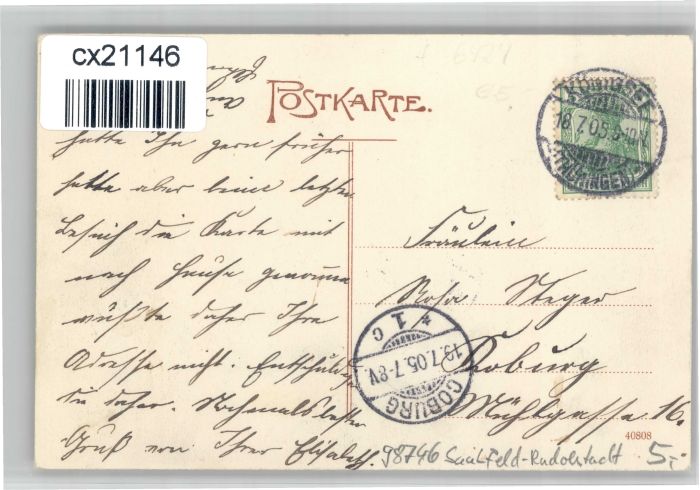 cx21146
POSTKARTE.
18.7.05.
(THÜRINGEN)
hatte Ihn gern früher
hatte aber beim letzten
Besuch die Karte mit
nach Hause genommen
wußte daher Ihre
Adresse nicht. Entschuldigen
Sie daher. Nochmals besten
Gruß von Ihrer Elisabeth.
Fräulein
Rosa Steger
Koburg
Mühlgasse 16.
* 1 c
19.7.05.7-8V.
COBURG
40808
98746 Saalfeld-Rudolstadt 5,-